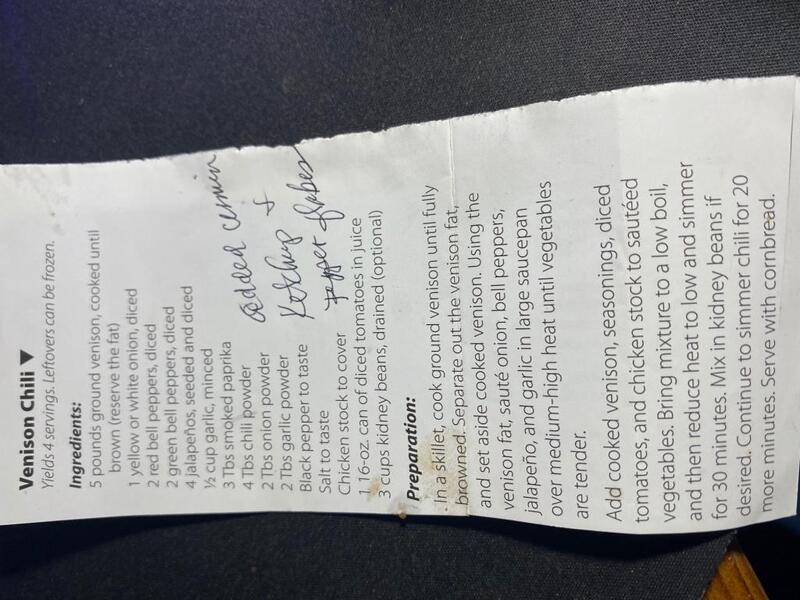 Venison Chili ▼
Yields 4 servings. Leftovers can be frozen.
Ingredients:
5 pounds ground venison, cooked until
brown (reserve the fat)
1 yellow or white onion, diced
2 red bell peppers, diced
2 green bell peppers, diced
4 jalapeños, seeded and diced
½ cup garlic, minced
3 Tbs smoked paprika
4 Tbs chili powder
2 Tbs onion powder
2 Tbs garlic powder
Black pepper to taste
Salt to taste
Chicken stock to cover
1 16-oz. can of diced tomatoes in juice
3 cups kidney beans, drained (optional)
added cumin
Ketchup &
pepper flakes
Preparation:
In a skillet, cook ground venison until fully
browned. Separate out the venison fat,
and set aside cooked venison. Using the
venison fat, sauté onion, bell peppers,
jalapeño, and garlic in large saucepan
over medium-high heat until vegetables
are tender.
Add cooked venison, seasonings, diced
tomatoes, and chicken stock to sautéed
vegetables. Bring mixture to a low boil,
and then reduce heat to low and simmer
for 30 minutes. Mix in kidney beans if
desired. Continue to simmer chili for 20
more minutes. Serve with cornbread.